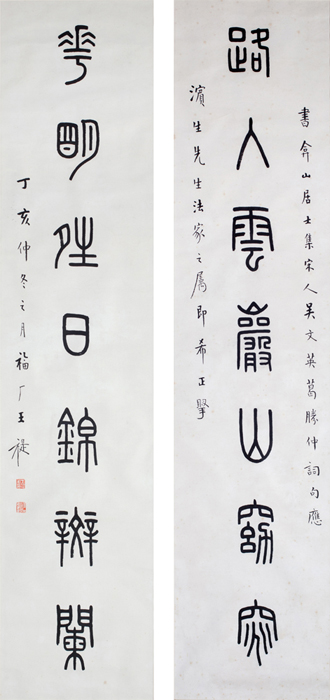 書弇山居士集宋人吳文英葛勝仲詞句應
路入雲巖山窈窕
濱生先生法家之屬即希正
華朙夝日錦辬闌
丁亥仲冬之月福厂王禔